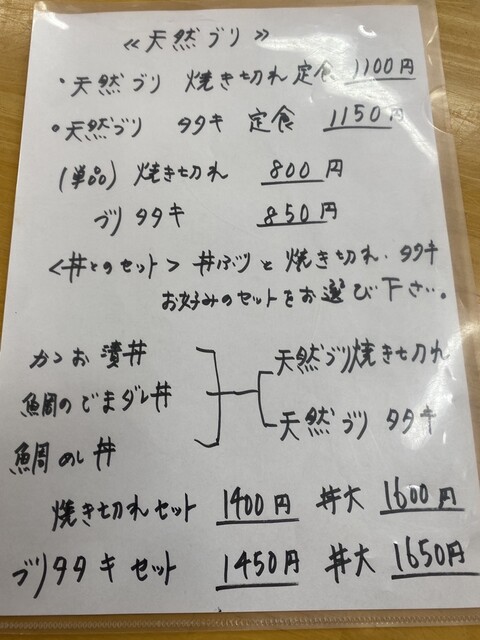 ≪天然ブリ≫
・天然ブリ 焼き切れ定食 1100円
・天然ブリ タタキ 定食 1150円
(単品) 焼き切れ 800円
ブリタタキ 850円
<丼とのセット> 丼ぶりと焼き切れ・タタキ
お好みのセットをお選び下さい。
かつお漬丼
天然ブリ焼き切れ
鯛のごまダレ丼
天然ブリ タタキ
鯛めし丼
焼き切れセット 1400円 丼大 1600円
ブリタタキセット 1450円 丼大 1650円